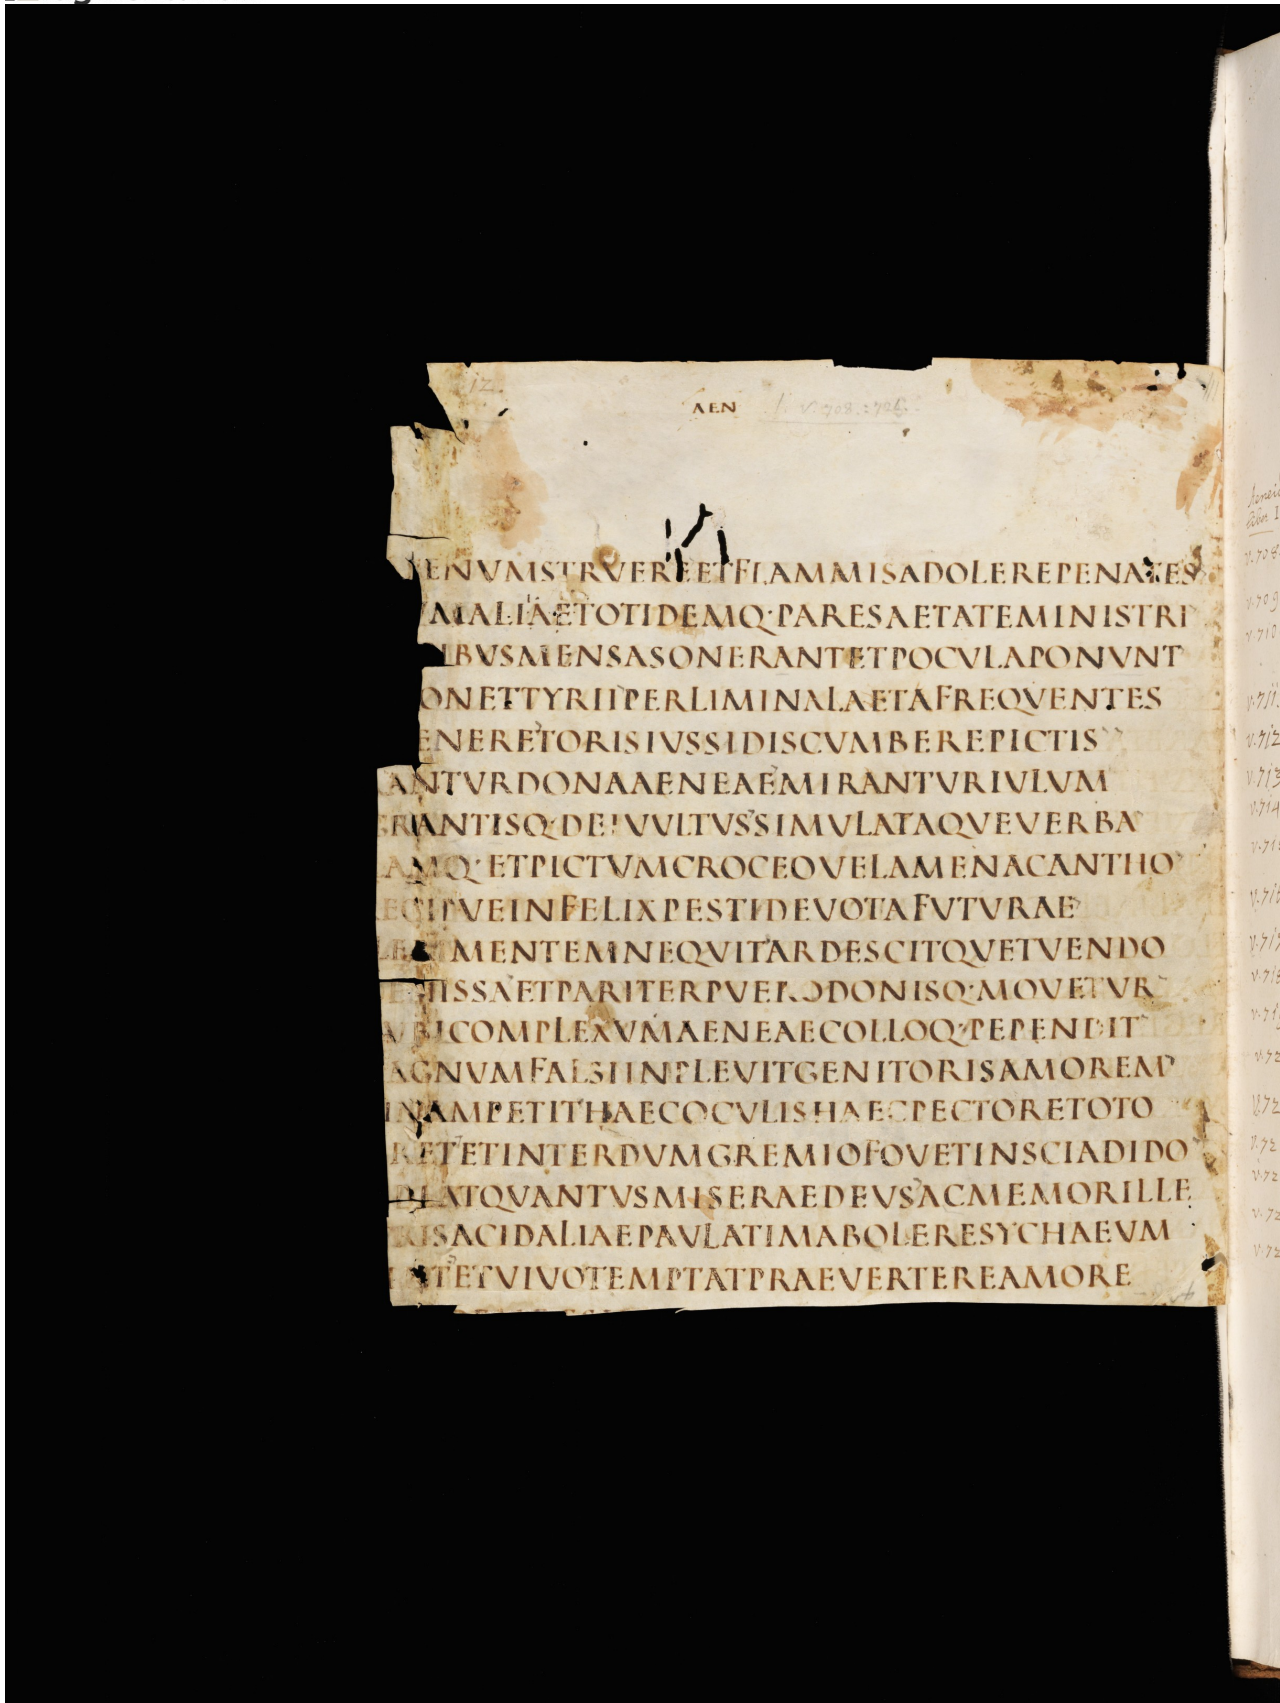 12
AEN v. 708. : 726.
ENVMSTRVEREETFLAMMISADOLEREPENATES
MALIAETOTIDEMQ·PARESAETATEMINISTRI
IBVSMENSASONERANTETPOCVLAPONVNT
ONETTYRIIPERLIMINALAETAFREQVENTES
ENERETORISIVSSIDISCVMBEREPICTIS
ANTVRDONAAENEAEMIRANTVRIVLVM
RANTISQ·DEIVVLTVSSIMVLATAQVEVERBA
AMQ·ETPICTVMCROCEOVELAMENACANTHO
ECIPVEINFELIXPESTIDEVOTAFVTVRAE
LERIMENTEMNEQVITARDESCITQVETVENDO
ENISSAETPARITERPVERODONISQ·MOVETVR
VBICOMPLEXVMAENEAECOLLOQ·PEPENDIT
AGNVMFALSIINPLEVITGENITORISAMOREM
INAMPETITHAECOCVLISHAECPECTORETOTO
RETETINTERDVMGREMIOFOVETINSCIADIDO
DEATQVANTVSMISERAEDEVSACMEMORILLE
RISACIDALIAEPAVLATIMABOLERESYCHAEVM
ITETVIVOTEMPTATPRAEVERTEREAMORE
v. 709
v. 710
v. 711.
v. 712
v. 713